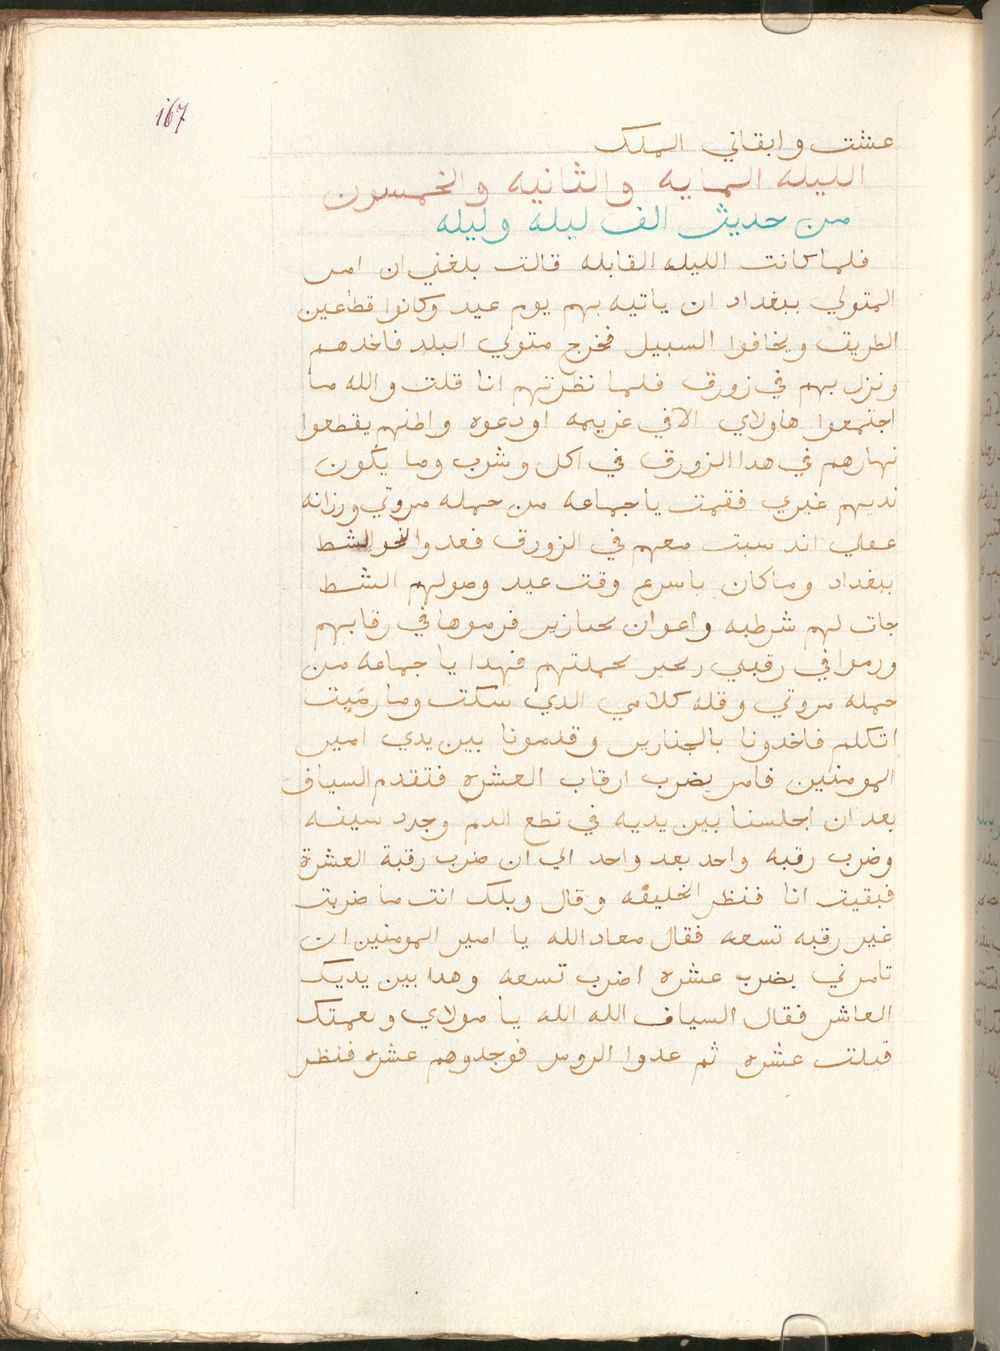 167
عشت وابقاني الملك
الليله المايه والثانيه والخمسون
من حديث الف ليله وليله
فلما كانت الليله القابله قالت بلغني ان امر
المتولي ببغداد ان ياتيه بهم يوم عيد وكانوا قطاعين
الطريق ويخافوا السبيل فخرج متولي البلد فاخدهم
ونزل بهم في زورق فلما نظرتهم انا قلت والله ما
اجتمعوا هاولاي الا في عزيمه اودعوه واظنهم يقطعوا
نهارهم في هدا الزورق في اكل وشرب وما يكون
نديهم غيري فقمت يا جماعه من حمله مروتي ورزانه
عقلي اندسبت معهم في الزورق فعدوا نحو الشط
ببغداد وماكان باسرع وقت عيد وصولهم الشط
جات لهم شرطيه واعوان بجنازير فرموها في رقابهم
ورموا في رقبتي زنجير بجملتهم فهدا يا جماعه من
حمله مروتي وقله كلامي الدي سكت وما رضيت
اتكلم فاخدونا بالجنازير وقدمونا بين يدي امير
المومنين فامر بضرب ارقاب العشره فتقدم السياف
بعد ان اجلسنا بين يديه في نطع الدم وجرد سيفه
وضرب رقبه واحد بعد واحد الي ان ضرب رقبة العشرة
فبقيت انا فنظر الخليفه وقال ويلك انت ما ضربت
غير رقبه تسعه فقال معاد الله يا امير المومنين ان
تامرني بضرب عشره اضرب تسعه وهدا بين يديك
العاشر فقال السياف الله الله يا مولاي ونعمتك
قتلت عشره ثم عدوا الروس فوجدوهم عشره فنظر